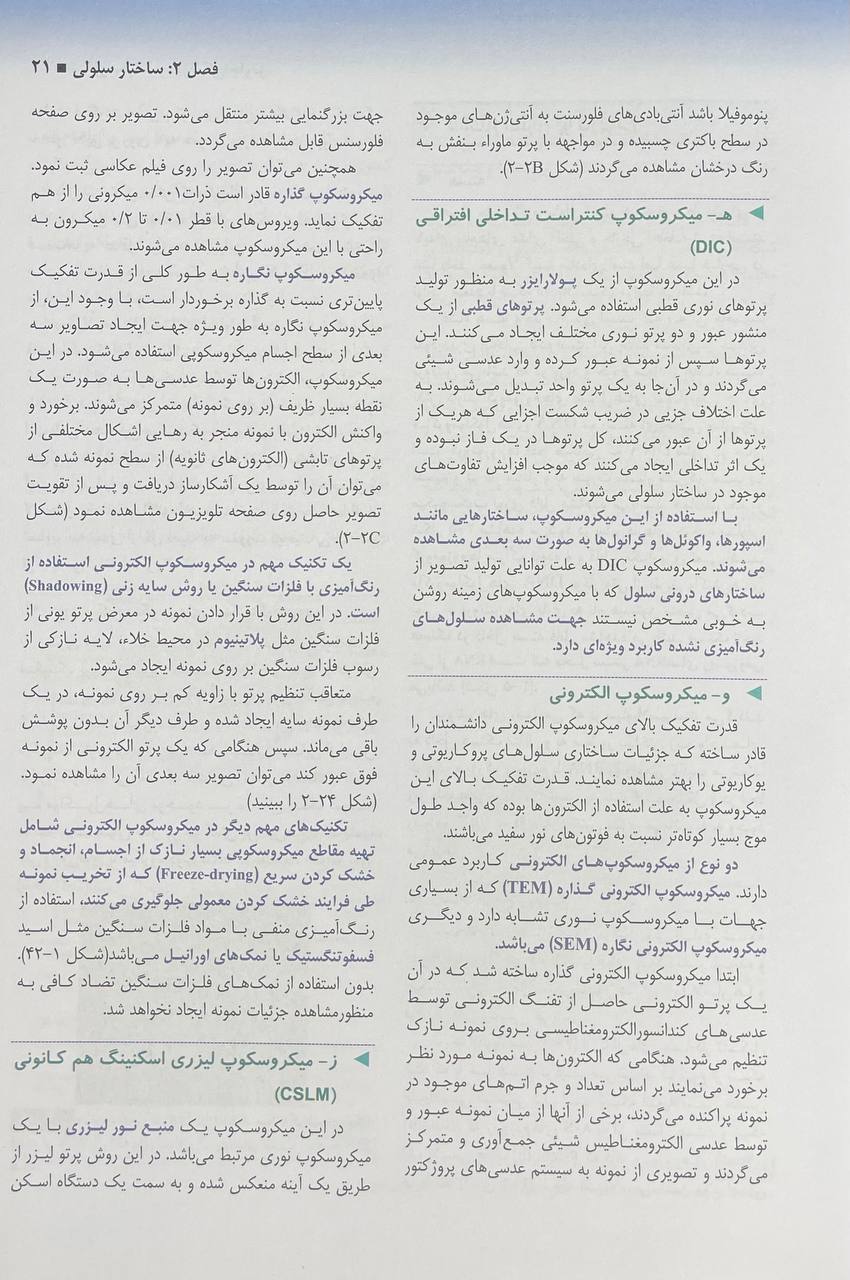 فصل ۲: ساختار سلولی ■ ۲۱
پنوموفیلا باشد آنتی‌بادی‌های فلورسنت به آنتی‌ژن‌های موجود
در سطح باکتری چسبیده و در مواجهه با پرتو ماوراء بنفش به
رنگ درخشان مشاهده می‌گردند (شکل ۲-۲B).
هـ- میکروسکوپ کنتراست تداخلی افتراقی
(DIC)
در این میکروسکوپ از یک پولارایزر به منظور تولید
پرتوهای نوری قطبی استفاده می‌شود. پرتوهای قطبی از یک
منشور عبور و دو پرتو نوری مختلف ایجاد می‌کنند. این
پرتوها سپس از نمونه عبور کرده و وارد عدسی شیئی
می‌گردند و در آن‌جا به یک پرتو واحد تبدیل می‌شوند. به
علت اختلاف جزیی در ضریب شکست اجزایی که هریک از
پرتوها از آن عبور می‌کنند، کل پرتوها در یک فاز نبوده و
یک اثر تداخلی ایجاد می‌کنند که موجب افزایش تفاوت‌های
موجود در ساختار سلولی می‌شوند.
با استفاده از این میکروسکوپ، ساختارهایی مانند
اسپورها، واکوئل‌ها و گرانول‌ها به صورت سه بعدی مشاهده
می‌شوند. میکروسکوپ DIC به علت توانایی تولید تصویر از
ساختارهای درونی سلول که با میکروسکوپ‌های زمینه روشن
به خوبی مشخص نیستند جهت مشاهده سلول‌های
رنگ‌آمیزی نشده کاربرد ویژه‌ای دارد.
و- میکروسکوپ الکترونی
قدرت تفکیک بالای میکروسکوپ الکترونی دانشمندان را
قادر ساخته که جزئیات ساختاری سلول‌های پروکاریوتی و
یوکاریوتی را بهتر مشاهده نمایند. قدرت تفکیک بالای این
میکروسکوپ به علت استفاده از الکترون‌ها بوده که واجد طول
موج بسیار کوتاه‌تر نسبت به فوتون‌های نور سفید می‌باشند.
دو نوع از میکروسکوپ‌های الکترونی کاربرد عمومی
دارند. میکروسکوپ الکترونی گذاره (TEM) که از بسیاری
جهات با میکروسکوپ نوری تشابه دارد و دیگری
میکروسکوپ الکترونی نگاره (SEM) می‌باشد.
ابتدا میکروسکوپ الکترونی گذاره ساخته شد که در آن
یک پرتو الکترونی حاصل از تفنگ الکترونی توسط
عدسی‌های کندانسورالکترومغناطیسی بروی نمونه نازک
تنظیم می‌شود. هنگامی که الکترون‌ها به نمونه مورد نظر
برخورد می‌نمایند بر اساس تعداد و جرم اتم‌های موجود در
نمونه پراکنده می‌گردند، برخی از آنها از میان نمونه عبور و
توسط عدسی الکترومغناطیس شیئی جمع‌آوری و متمرکز
می‌گردند و تصویری از نمونه به سیستم عدسی‌های پروژکتور
جهت بزرگنمایی بیشتر منتقل می‌شود. تصویر بر روی صفحه
فلورسنس قابل مشاهده می‌گردد.
همچنین می‌توان تصویر را روی فیلم عکاسی ثبت نمود.
میکروسکوپ گذاره قادر است ذرات۰/۰۰۱ میکرونی را از هم
تفکیک نماید. ویروس‌های با قطر ۰/۰۱ تا ۰/۲ میکرون به
راحتی با این میکروسکوپ مشاهده می‌شوند.
میکروسکوپ نگاره به طور کلی از قدرت تفکیک
پایین‌تری نسبت به گذاره برخوردار است، با وجود این، از
میکروسکوپ نگاره به طور ویژه جهت ایجاد تصاویر سه
بعدی از سطح اجسام میکروسکوپی استفاده می‌شود. در این
میکروسکوپ، الکترون‌ها توسط عدسی‌ها به صورت یک
نقطه بسیار ظریف (بر روی نمونه) متمرکز می‌شوند. برخورد و
واکنش الکترون با نمونه منجر به رهایی اشکال مختلفی از
پرتوهای تابشی (الکترون‌های ثانویه) از سطح نمونه شده که
می‌توان آن را توسط یک آشکارساز دریافت و پس از تقویت
تصویر حاصل روی صفحه تلویزیون مشاهده نمود (شکل
۲-۲C).
یک تکنیک مهم در میکروسکوپ الکترونی استفاده از
رنگ‌آمیزی با فلزات سنگین یا روش سایه زنی (Shadowing)
است. در این روش با قرار دادن نمونه در معرض پرتو یونی از
فلزات سنگین مثل پلاتینیوم در محیط خلاء، لایه نازکی از
رسوب فلزات سنگین بر روی نمونه ایجاد می‌شود.
متعاقب تنظیم پرتو با زاویه کم بر روی نمونه، در یک
طرف نمونه سایه ایجاد شده و طرف دیگر آن بدون پوشش
باقی می‌ماند. سپس هنگامی که یک پرتو الکترونی از نمونه
فوق عبور کند می‌توان تصویر سه بعدی آن را مشاهده نمود.
(شکل ۲۴-۲ را ببینید)
تکنیک‌های مهم دیگر در میکروسکوپ الکترونی شامل
تهیه مقاطع میکروسکوپی بسیار نازک از اجسام، انجماد و
خشک کردن سریع (Freeze-drying) که از تخریب نمونه
طی فرایند خشک کردن معمولی جلوگیری می‌کنند، استفاده از
رنگ‌آمیزی منفی با مواد فلزات سنگین مثل اسید
فسفوتنگستیک یا نمک‌های اورانیل می‌باشد(شکل ۱-۴۲).
بدون استفاده از نمک‌های فلزات سنگین تضاد کافی به
منظورمشاهده جزئیات نمونه ایجاد نخواهد شد.
ز- میکروسکوپ لیزری اسکنینگ هم کانونی
(CSLM)
در این میکروسکوپ یک منبع نور لیزری با یک
میکروسکوپ نوری مرتبط می‌باشد. در این روش پرتو لیزر از
طریق یک آینه منعکس شده و به سمت یک دستگاه اسکن